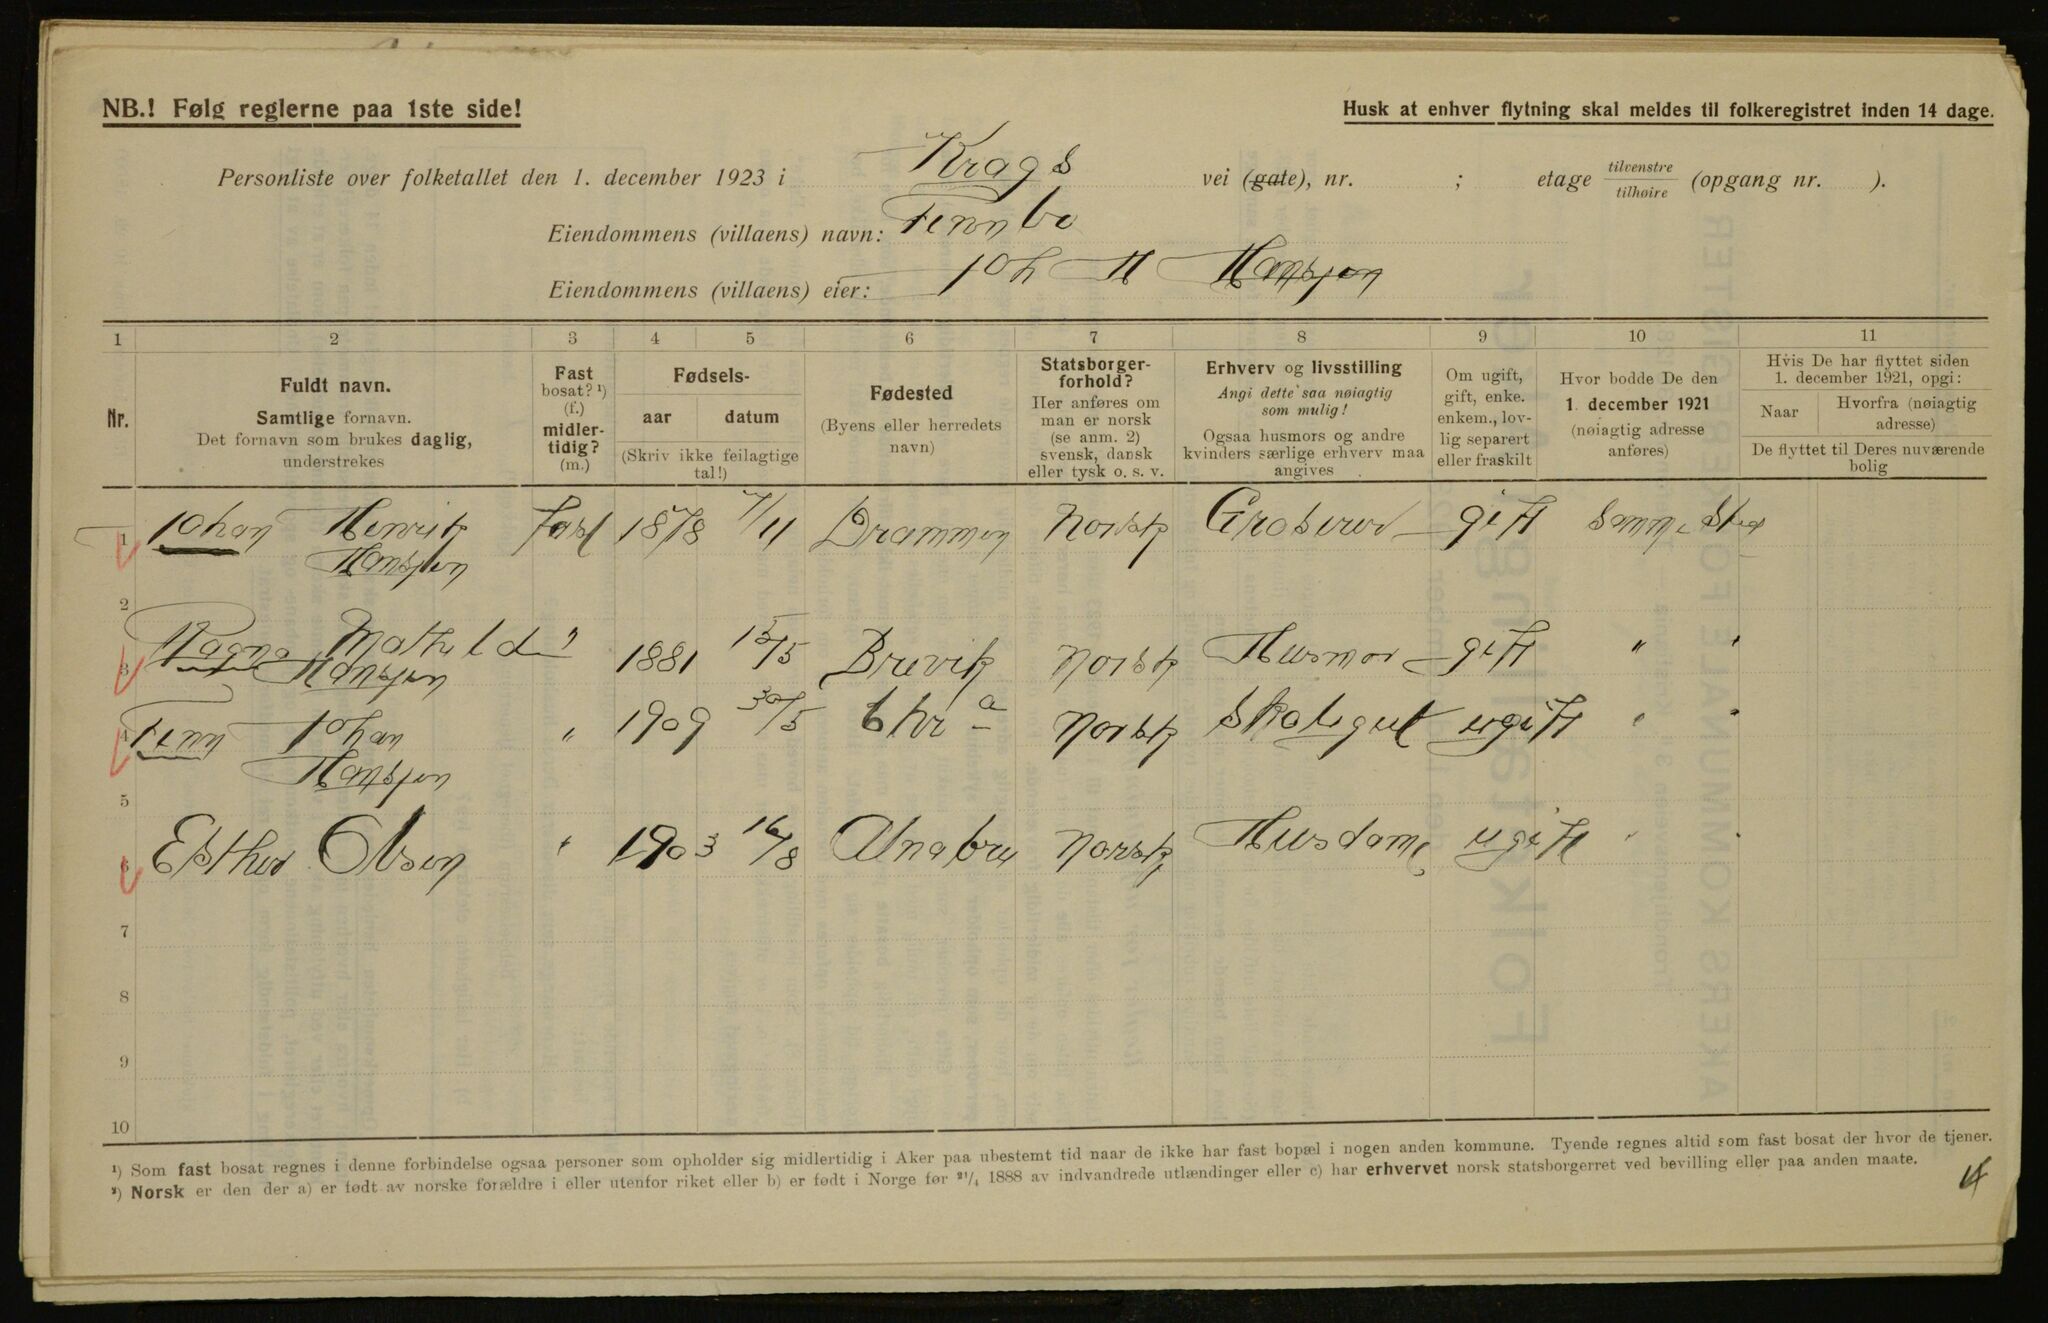 NB.! Følg reglerne paa 1ste side!
Husk at enhver flytning skal meldes til folkeregistret inden 14 dage.
Personliste over folketallet den 1. december 1923 i Krags vei (gate), nr. ; etage tilvenstre tilhøire (opgang nr. ).
Eiendommens (villaens) navn: Finnbo
Eiendommens (villaens) eier: Joh H Hanssen
1 2 3 4 5 6 7 8 9 10 11
Nr.
Fuldt navn.
Samtlige fornavn.
Det fornavn som brukes daglig,
understrekes
Fast
bosat? ¹)
(f.)
midler-
tidig?
(m.)
Fødsels-
aar datum
(Skriv ikke feilagtige
tal!)
Fødested
(Byens eller herredets
navn)
Statsborger-
forhold?
Her anføres om
man er norsk
(se anm. 2)
svensk, dansk
eller tysk o. s. v.
Erhverv og livsstilling
Angi dette saa nøiagtig
som mulig!
Ogsaa husmors og andre
kvinders særlige erhverv maa
angives
Om ugift,
gift, enke.
enkem., lov-
lig separert
eller fraskilt
Hvor bodde De den
1. december 1921
(nøiagtig adresse
anføres)
Hvis De har flyttet siden
1. december 1921, opgi:
Naar
Hvorfra (nøiagtig
adresse)
De flyttet til Deres nuværende
bolig
1 Johan Henrik Fast 1878 7/11 Drammen Norsk Grosserer gift Samme Sted
Hanssen
2
3 Ragna Mathilde " 1881 15/5 Brevik Norsk Husmor gift " "
Hanssen
4 Finn Johan " 1909 30/5 Chr a Norsk Skolegut ugift " "
Hanssen
5
6 Esther Olsen " 1903 16/8 Alnabru Norsk Husdame ugift " "
7
8
9
10
¹) Som fast bosat regnes i denne forbindelse ogsaa personer som opholder sig midlertidig i Aker paa ubestemt tid naar de ikke har fast bopæl i nogen anden kommune. Tyende regnes altid som fast bosat der hvor de tjener.
²) Norsk er den der a) er født av norske forældre i eller utenfor riket eller b) er født i Norge før ²¹/₄ 1888 av indvandrede utlændinger eller c) har erhvervet norsk statsborgerret ved bevilling eller paa anden maate.